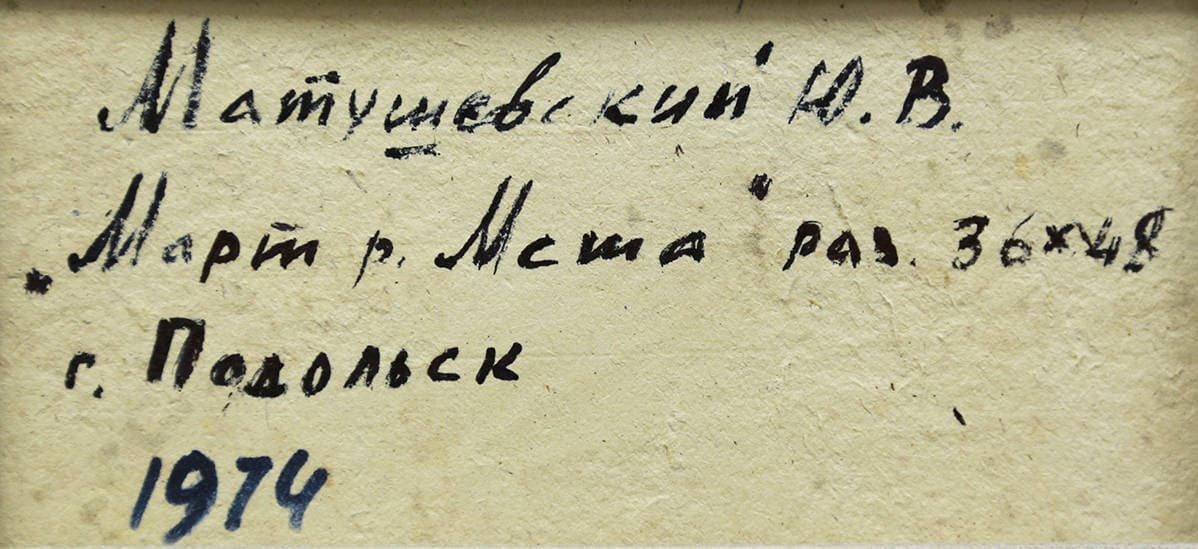 Матушевский Ю. В.
"Март р. Мсша" раз. 36×48
г. Подольск
1974